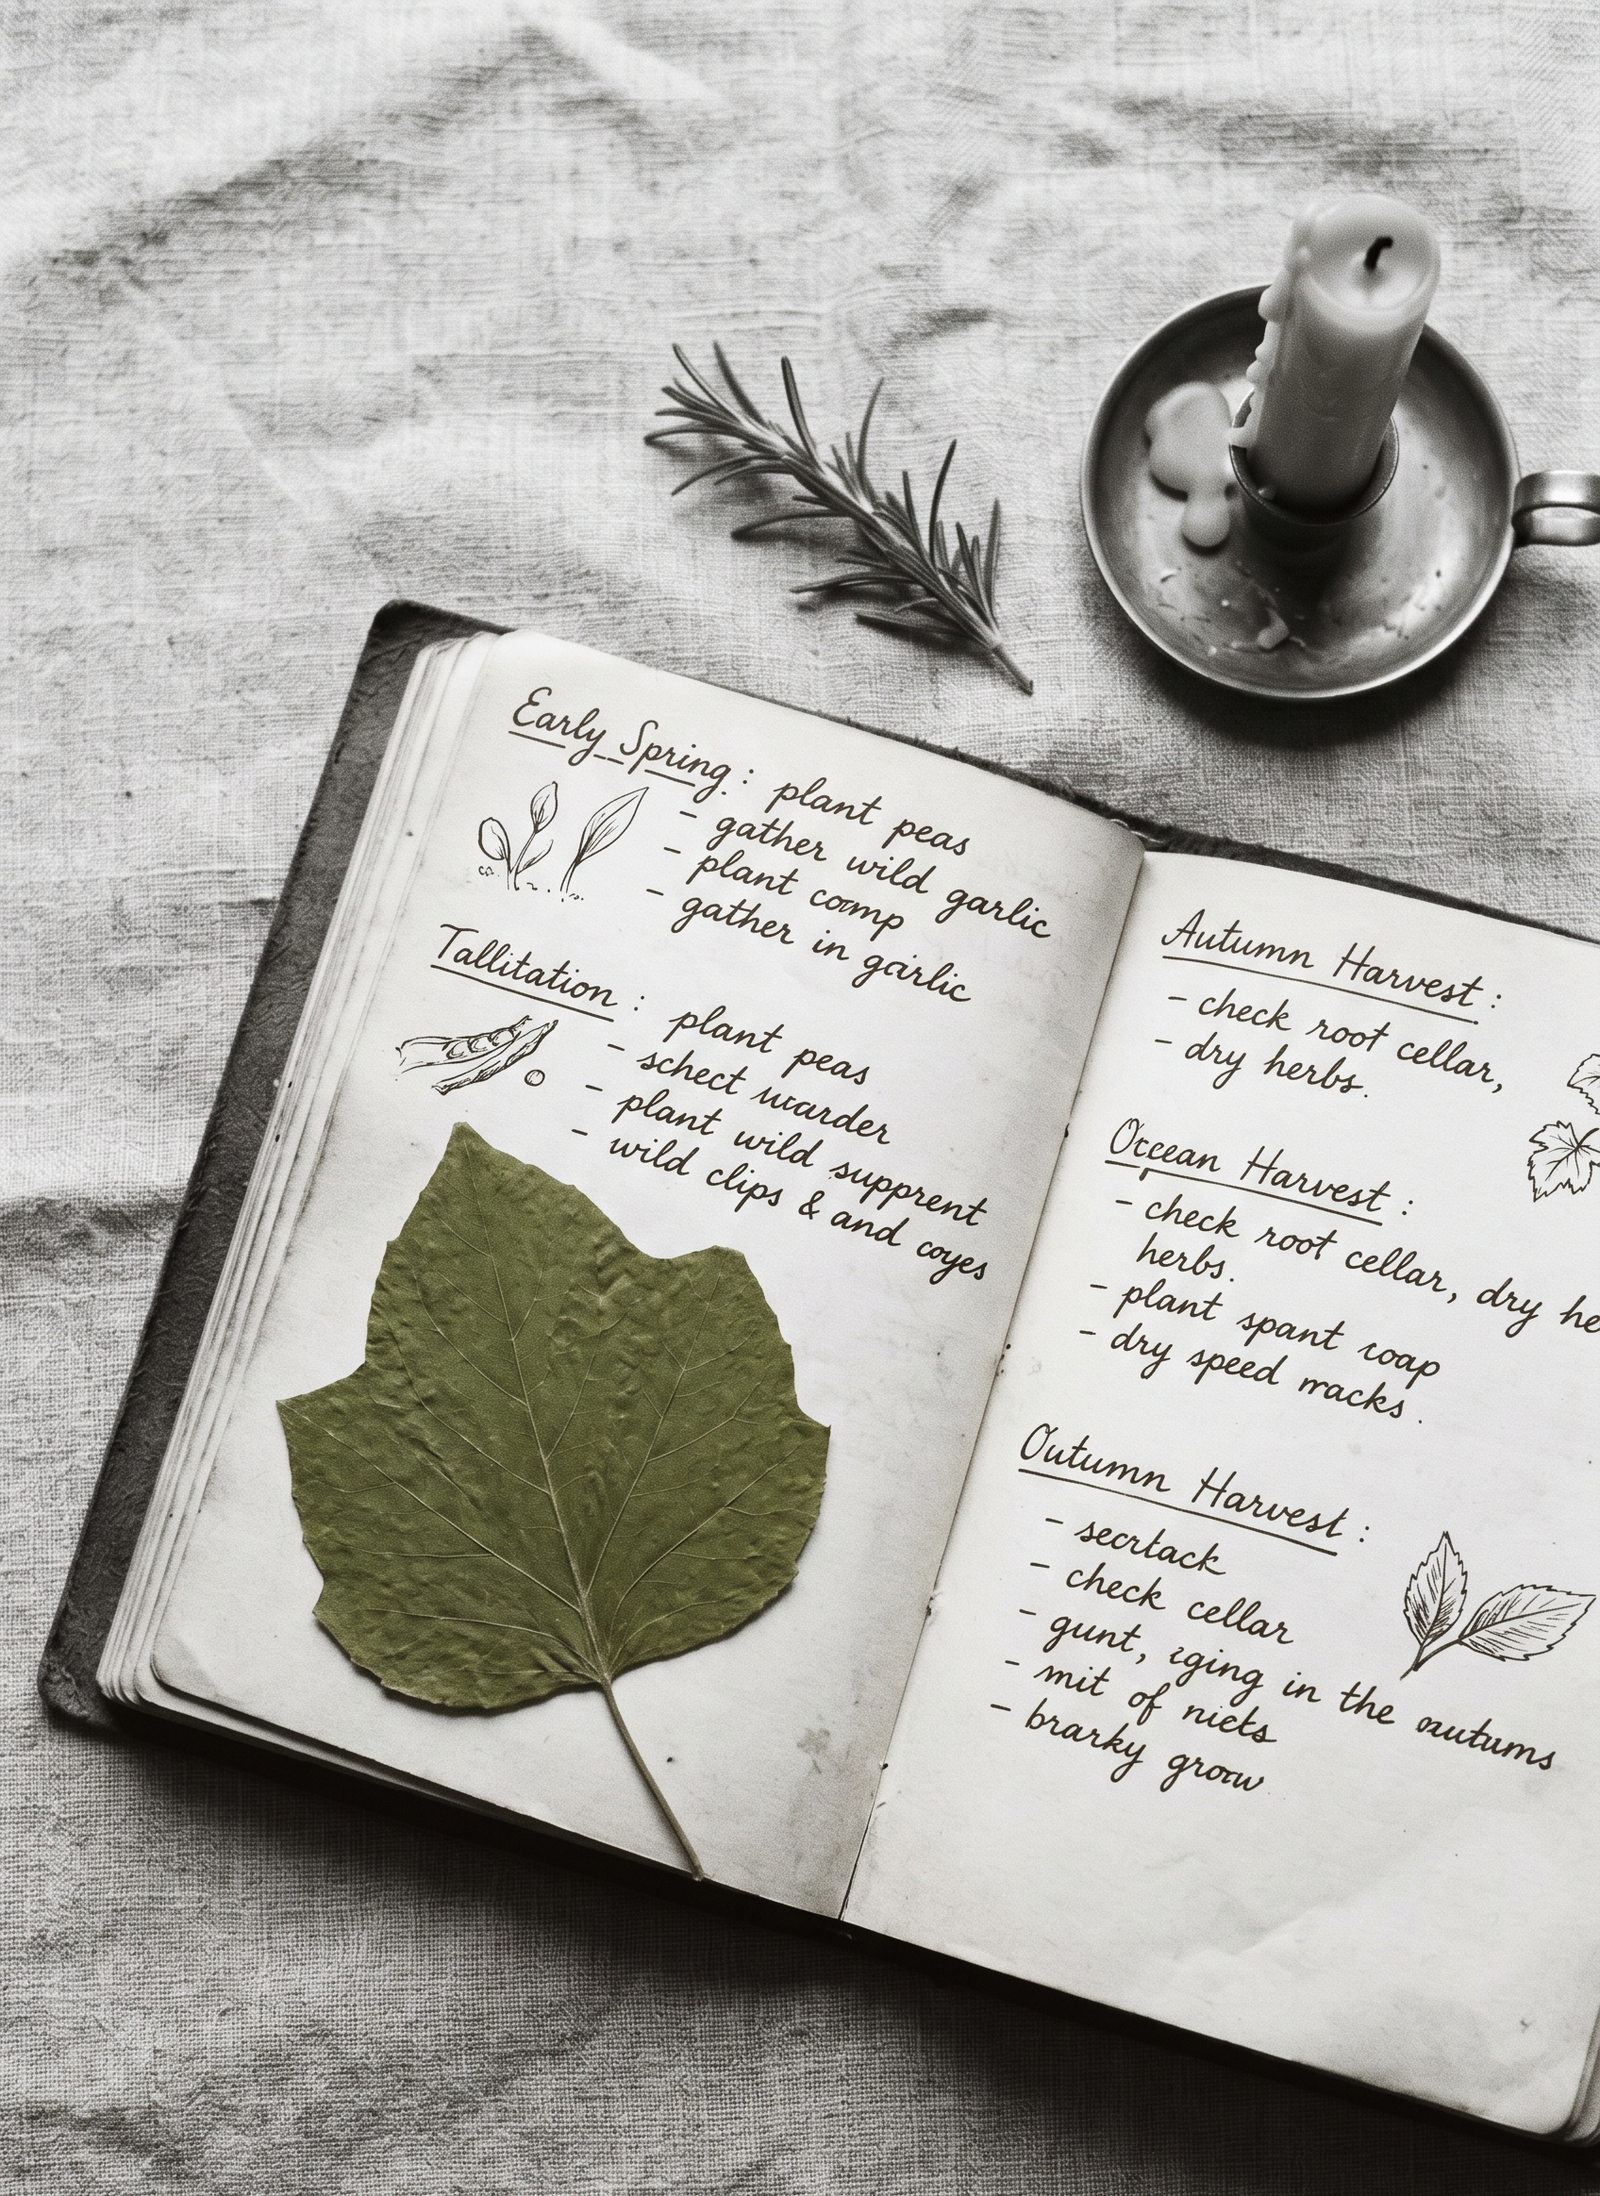 Early Spring: plant peas
- gather wild garlic
- plant comp
- gather in garlic
Tallitation: plant peas
- schect warder
- plant wild supprent
- wild clips & and coyes
Autumn Harvest:
- check root cellar,
- dry herbs.
Ocean Harvest:
- check root cellar, dry he
herbs.
- plant spant
- dry speed macks.
Outumn Harvest:
- secrtack
- check cellar
- gunt, in the autums
- mit of niets
- brarky grow